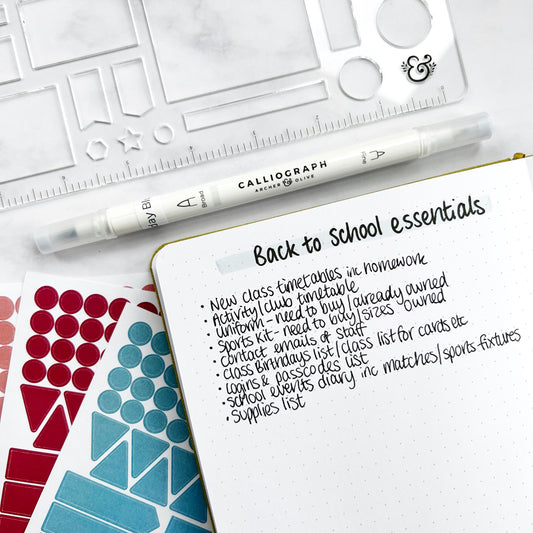 &
CALLIOGRAPH
ARCHER & OLIVE
A
Fine
A
Broad
Back to school essentials
• New class timetables inc homework
• Activity/club timetable
• Uniform - need to buy/already owned
• Sports kit - need to buy/sizes owned
• Contact emails of staff
• Class Birthdays list/class list for cards etc
• Logins & passcodes list
• School events diary inc matches/sports fixtures
• Supplies list